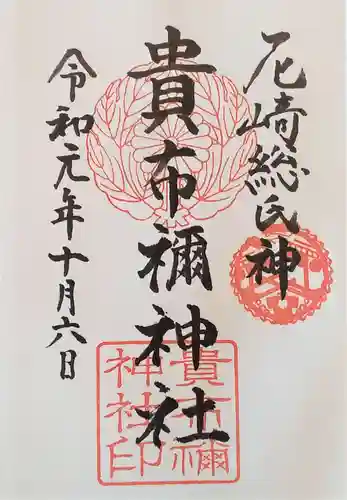 尼崎総氏神
貴布禰神社
令和元年十月六日
貴布禰
神社印